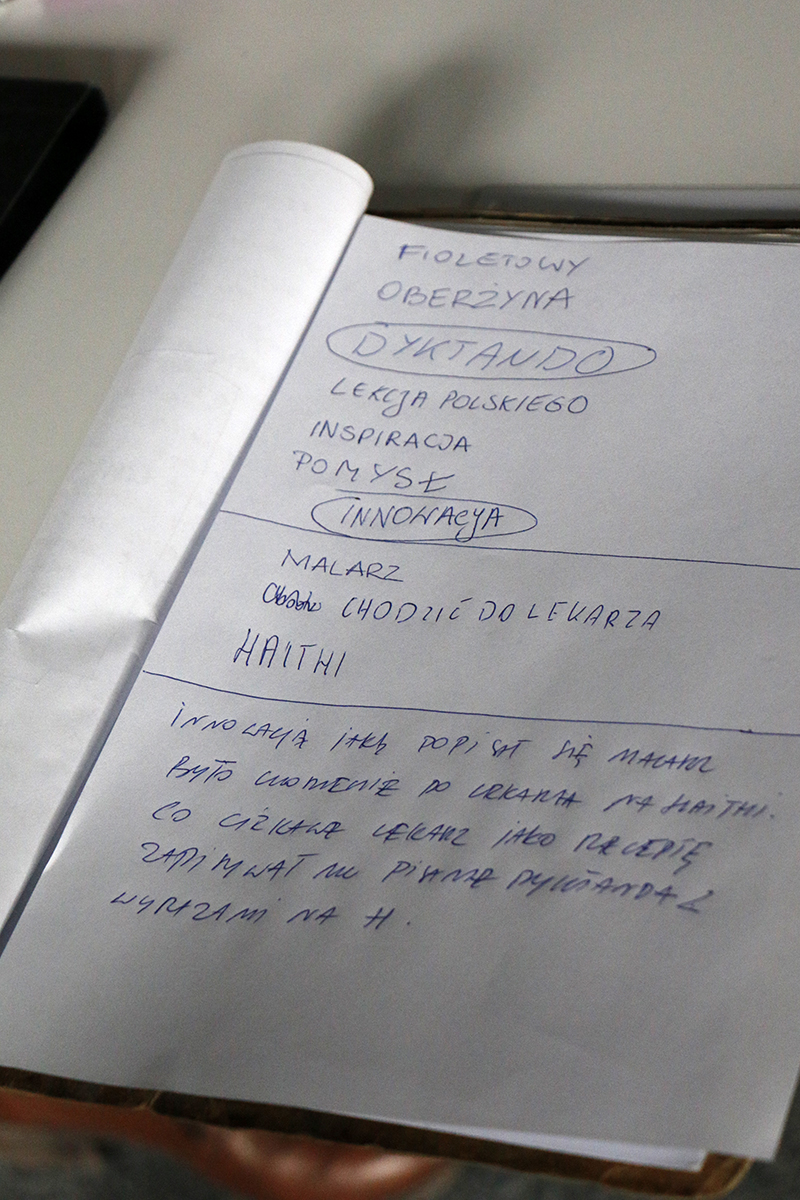 FIOLETOWY
OBERŻYNA
DYKTANDO
LEKCJA POLSKIEGO
INSPIRACJA
POMYSŁ
INNOWACJA
MALARZ
CHODZIĆ DO LEKARZA
HAITHI
INNOWACJĄ JAKĄ POPISAŁ SIĘ MALARZ
BYŁO CHODZENIE DO LEKARZA NA HAITHI.
CO CIEKAWE LEKARZ JAKO RECEPTĘ
ZAPISYWAŁ MU PISANIE DYKTANDA Z
WYRAZAMI NA H.